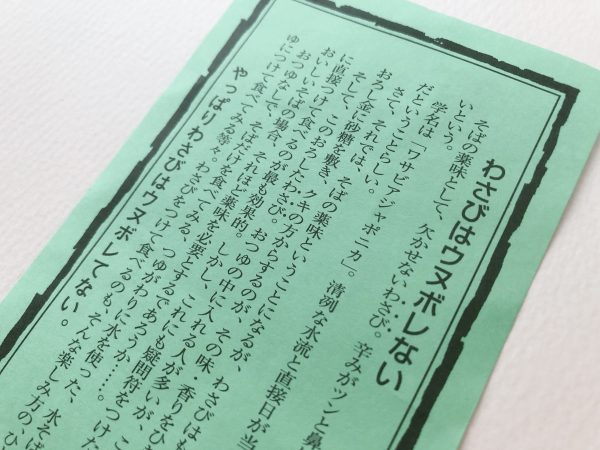 わさびはウヌボレない
そばの薬味として、欠かせないわさび。辛みがツンと鼻
いという。
学名は「ワサビアジャポニカ」。清冽な水流と直接日が当
だということらしい。
さて、それでは、そばの薬味ということになるが、わさびはも
おろし金に砂糖を敷き、クキの方からするのが、その味・香りをひき
そして、このおろしたわさび。おつゆの中に入れる人が多いが、こ
に直接つけて食べるのが最も効果的。しかし、これにも疑問符をつけた
おいしいそばの場合、それほど薬味を必要とするであろうか……。
おつゆなしで、そばだけを食べてみる。つゆがわりに水を使った、水そば
ゆにつけて食べてみる等々。わさびをつけて食べるのも、そんな楽しみ方のひ
やっぱりわさびはウヌボレてない。